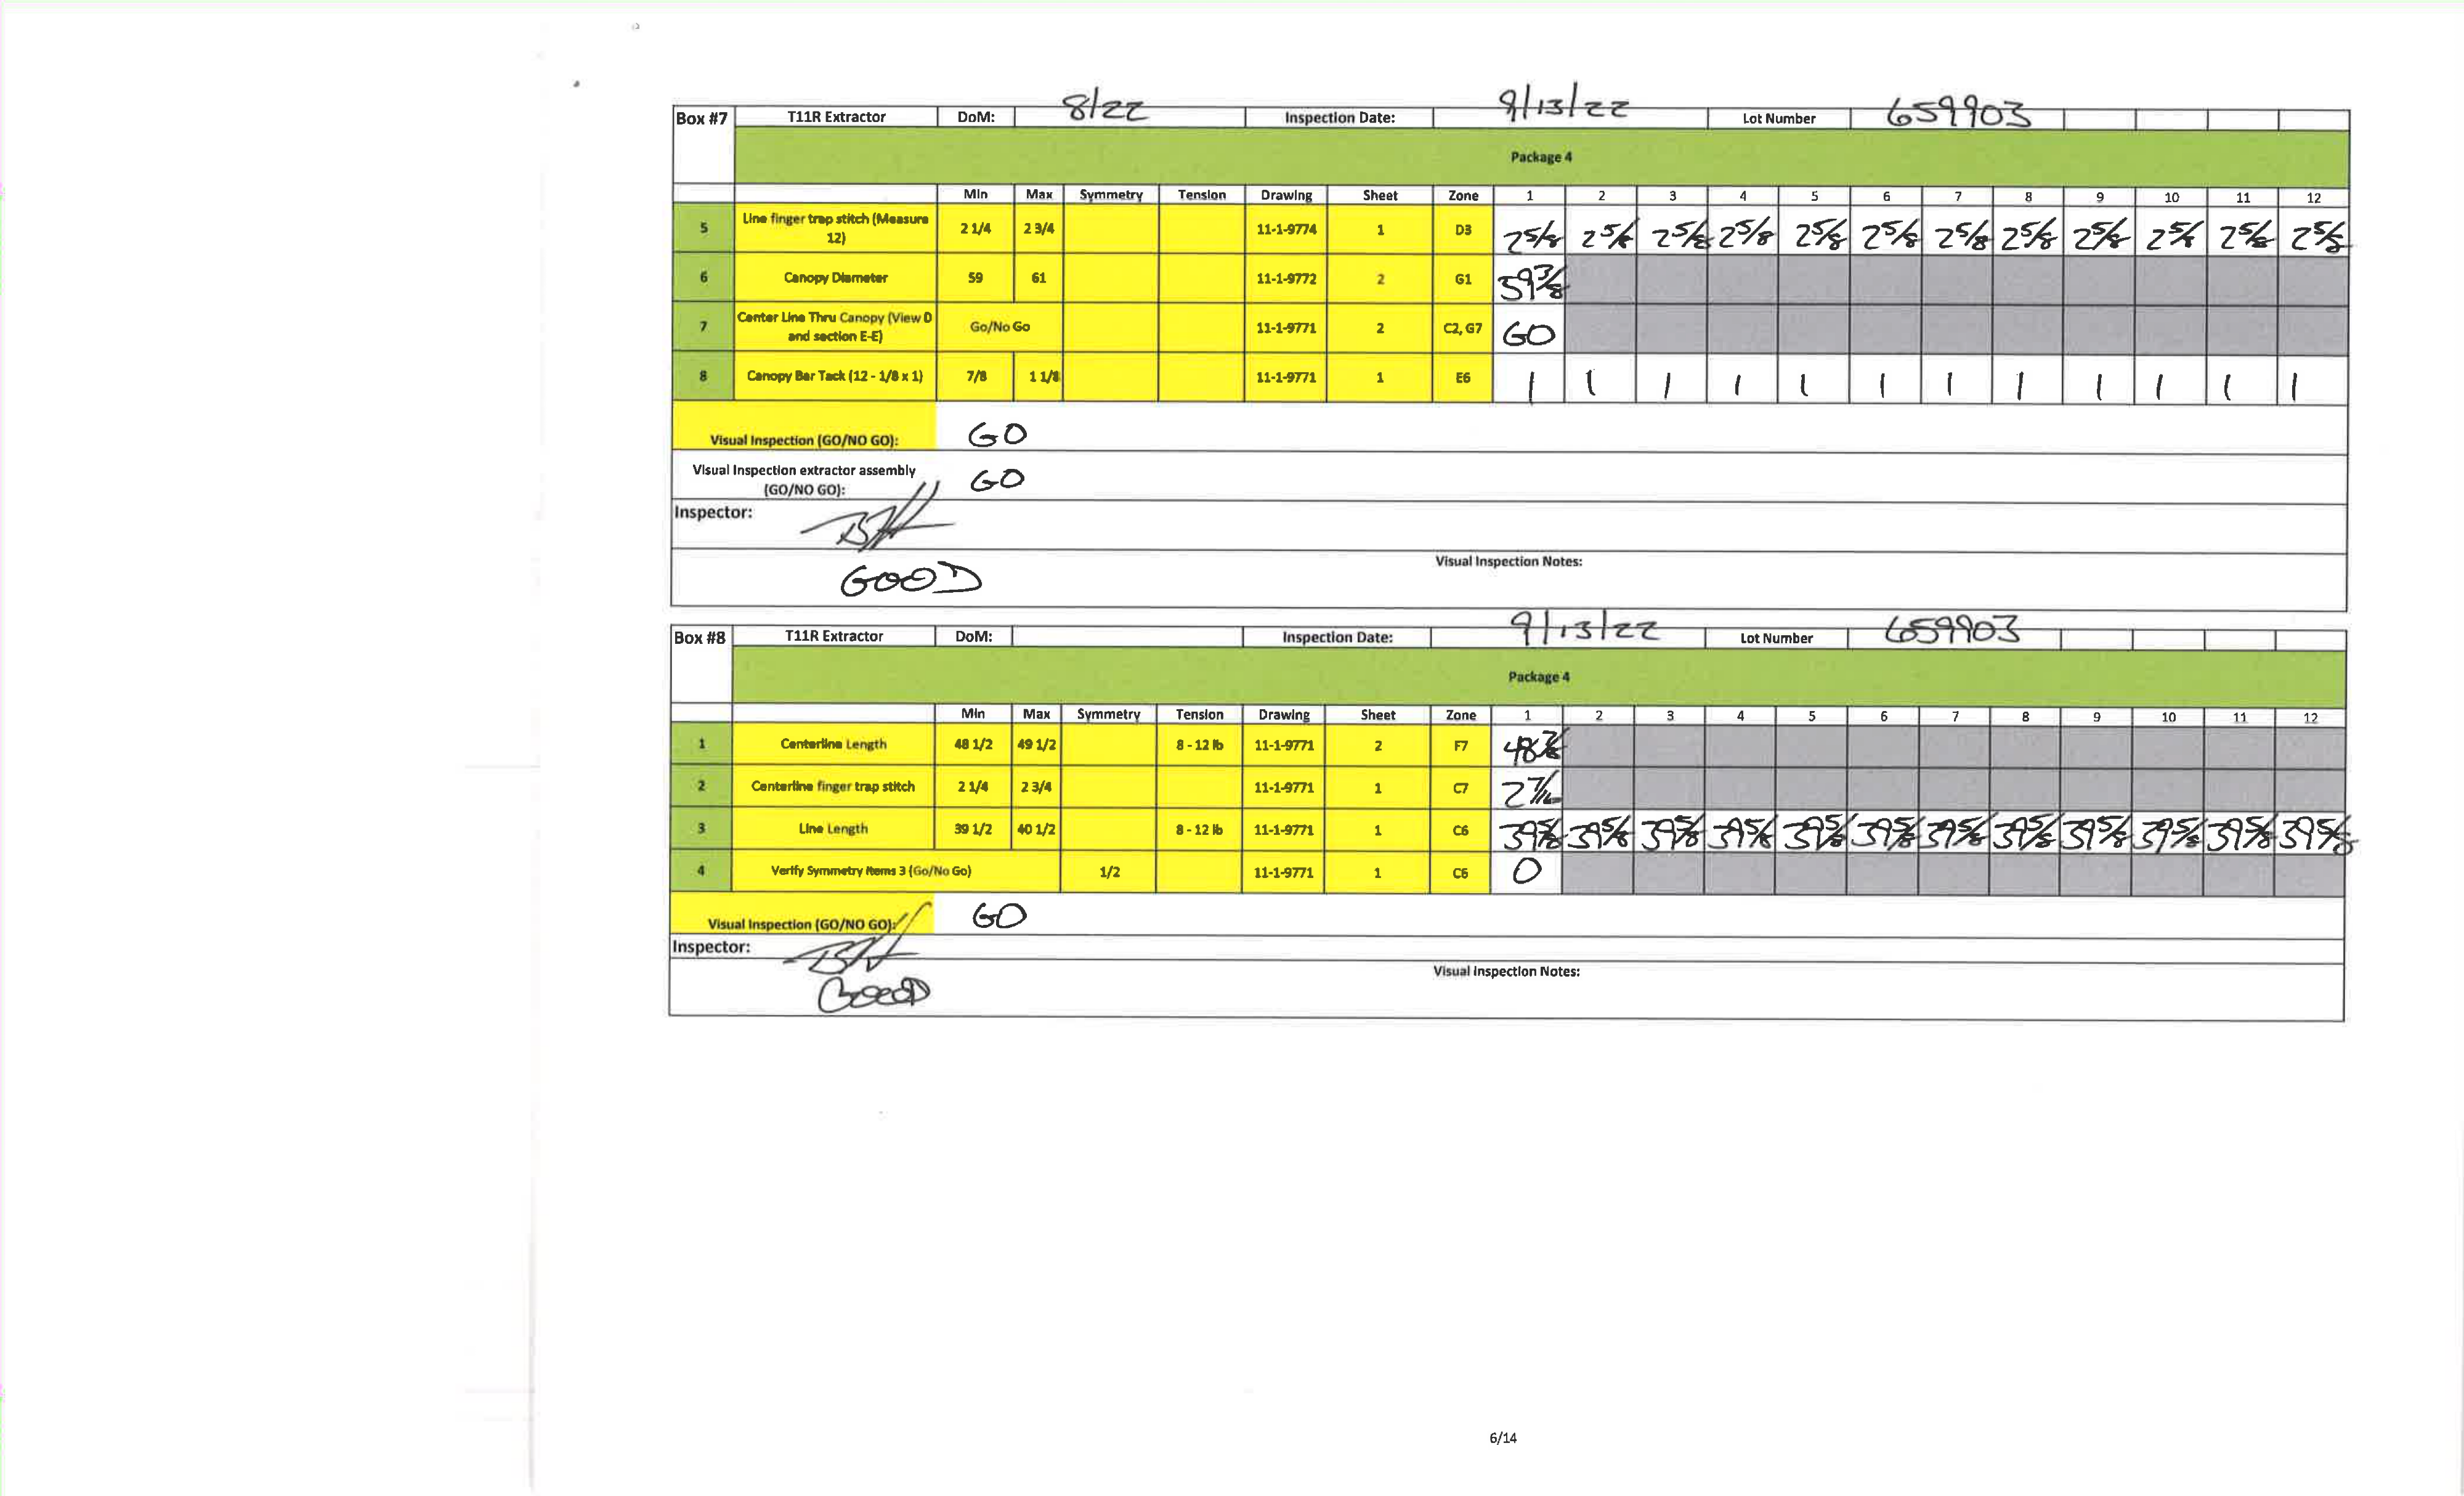 Box #7 T11R Extractor DoM: 8/22 Inspection Date: 9/13/22 Lot Number 659903
Package 4
Min Max Symmetry Tension Drawing Sheet Zone 1 2 3 4 5 6 7 8 9 10 11 12
5 Line finger trap stitch (Measure 12) 2 1/4 2 3/4 11-1-9774 1 D3 2 5/8 2 5/8 2 5/8 2 5/8 2 5/8 2 5/8 2 5/8 2 5/8 2 5/8 2 5/8 2 5/8 2 5/8
6 Canopy Diameter 59 61 11-1-9772 2 G1 59 3/8
7 Center Line Thru Canopy (View D and section E-E) Go/No Go 11-1-9771 2 C2, G7 GO
8 Canopy Bar Tack (12 - 1/8 x 1) 7/8 1 1/8 11-1-9771 1 E6 1 1 1 1 1 1 1 1 1 1 1 1
Visual Inspection (GO/NO GO): GO
Visual Inspection extractor assembly (GO/NO GO): GO
Inspector:
Visual Inspection Notes:
GOOD
Box #8 T11R Extractor DoM: Inspection Date: 9/13/22 Lot Number 659903
Package 4
Min Max Symmetry Tension Drawing Sheet Zone 1 2 3 4 5 6 7 8 9 10 11 12
1 Centerline Length 48 1/2 49 1/2 8 - 12 lb 11-1-9771 2 F7
2 Centerline finger trap stitch 2 1/4 2 3/4 11-1-9771 1 C7 2 7/16
3 Line Length 39 1/2 40 1/2 8 - 12 lb 11-1-9771 1 C6 39 5/8 39 5/8 39 5/8 39 5/8 39 5/8 39 5/8 39 5/8 39 5/8 39 5/8 39 5/8 39 5/8 39 5/8
4 Verify Symmetry Items 3 (Go/No Go) 1/2 11-1-9771 1 C6 0
Visual Inspection (GO/NO GO): GO
Inspector:
Visual Inspection Notes:
GOOD
6/14